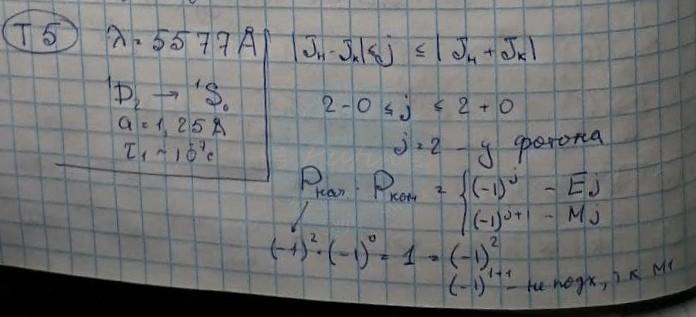 T5
λ = 5577 Å
¹D₂ → ¹S₀
a = 1,25 Å
τ₁ ~ 10⁻⁷ c
|Jн - Jк| ≤ j ≤ |Jн + Jк|
2 - 0 ≤ j ≤ 2 + 0
j = 2 - у фотона
Pнач · Pкон = { (-1)^j - Ej
(-1)^{j+1} - Mj
(-1)² · (-1)⁰ = 1 = (-1)²
(-1)^{1+1} - не подх, т.к M1